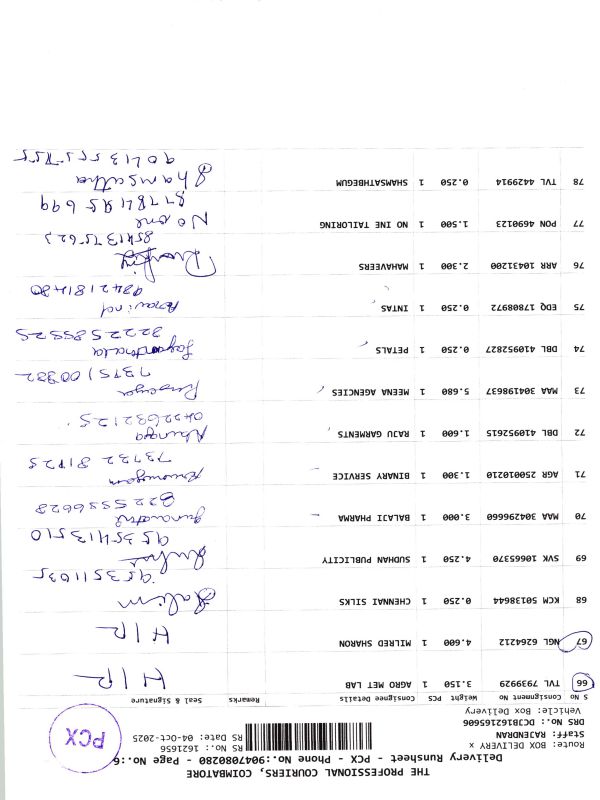 THE PROFESSIONAL COURIERS, COIMBATORE
Delivery Runsheet - PCX - Phone No.:9047080280 - Page No.:6
Route: BOX DELIVERY x
Staff: RAJENDRAN
DRS No.: DCJ2B16215606
Vehicle: Box Delivery
RS No.: 1621656
RS Date: 04-Oct-2025
PCX
S No Consignment No Weight PCS Consignee Details Remarks Seal & Signature
66 TVL 7939929 3.150 1 AGRO MET LAB H/R
67 NGL 6264212 4.600 1 MILRED SHARON H/R
68 KCM 50138644 0.250 1 CHENNAI SILKS Salim
69 SVK 10665370 4.250 1 SUDHAN PUBLICITY
9535413510
70 MAA 304296660 3.000 1 BALAJI PHARMA
8225556628
71 AGR 250010210 1.300 1 BINARY SERVICE
72 DBL 410952615 1.600 1 RAJU GARMENTS
73 MAA 304198637 5.680 1 MEENA AGENCIES
74 DBL 410952827 0.250 1 PETALS
75 EDQ 17808972 0.250 1 INTAS Aravind
76 ARR 10431200 2.300 1 MAHAVEERS
77 PON 4690123 1.500 1 NO INE TAILORING No one
78 TVL 4429914 0.250 1 SHAMSATHBEGUM Shamsatha